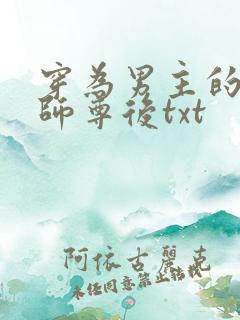 穿為男主的
師尊後txt
阿依古麗克
未经同意禁止转载